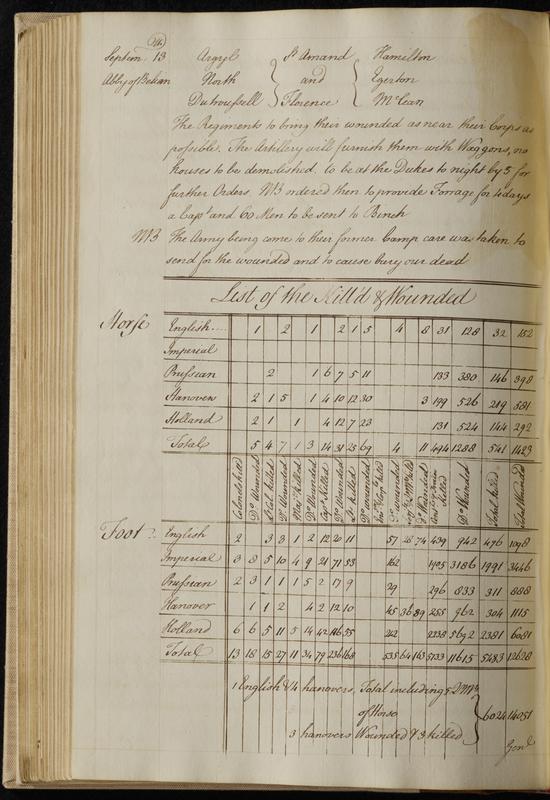 Septem. 13 Argyl St Amand Hamilton
Abby of Belian North and Egerton
Dutroussell Florence McLean
The Regiments to bring their wounded as near their Corps as
possible. The Artillery will furnish them with Waggons, no
houses to be demolished. to be at the Dukes to night by 5 for
further Orders. NB ordered then to provide Forrage for 4 days
a Capt and 60 Men to be sent to Binch
NB The Army being come to their former Camp care was taken to
send for the wounded and to cause bury our dead
List of the Kill'd & Wounded
Horse English.... 1 2 1 2 1 5 4 8 31 128 32 152
Imperial
Prussian 2 1 6 7 5 11 133 380 146 398
Hanovers 2 1 5 1 4 10 12 30 3 199 526 219 581
Holland 2 1 1 4 12 7 23 131 524 144 292
Total 5 4 7 1 3 14 31 25 69 4 11 494 1288 541 1423
Do Wounded
Do Wounded
Total killed
Total Wounded
Foot English 2 3 3 1 2 12 20 11 57 28 74 439 942 476 1098
Imperial 3 8 5 10 4 9 21 71 53 162 1905 3186 1991 3446
Prussian 2 3 1 1 1 5 2 17 9 29 296 833 311 888
Hanover 1 1 2 4 2 12 10 45 36 89 255 962 304 1115
Holland 6 6 5 11 5 14 42 116 55 242 2338 5692 2381 6081
Total 13 18 15 27 11 34 79 236 168 535 64 163 5133 11615 5483 12628
1 English & 4 hanovers, Total including
of Horse
6024 14051
3 hanovers Wounded & 3 killed
Genl